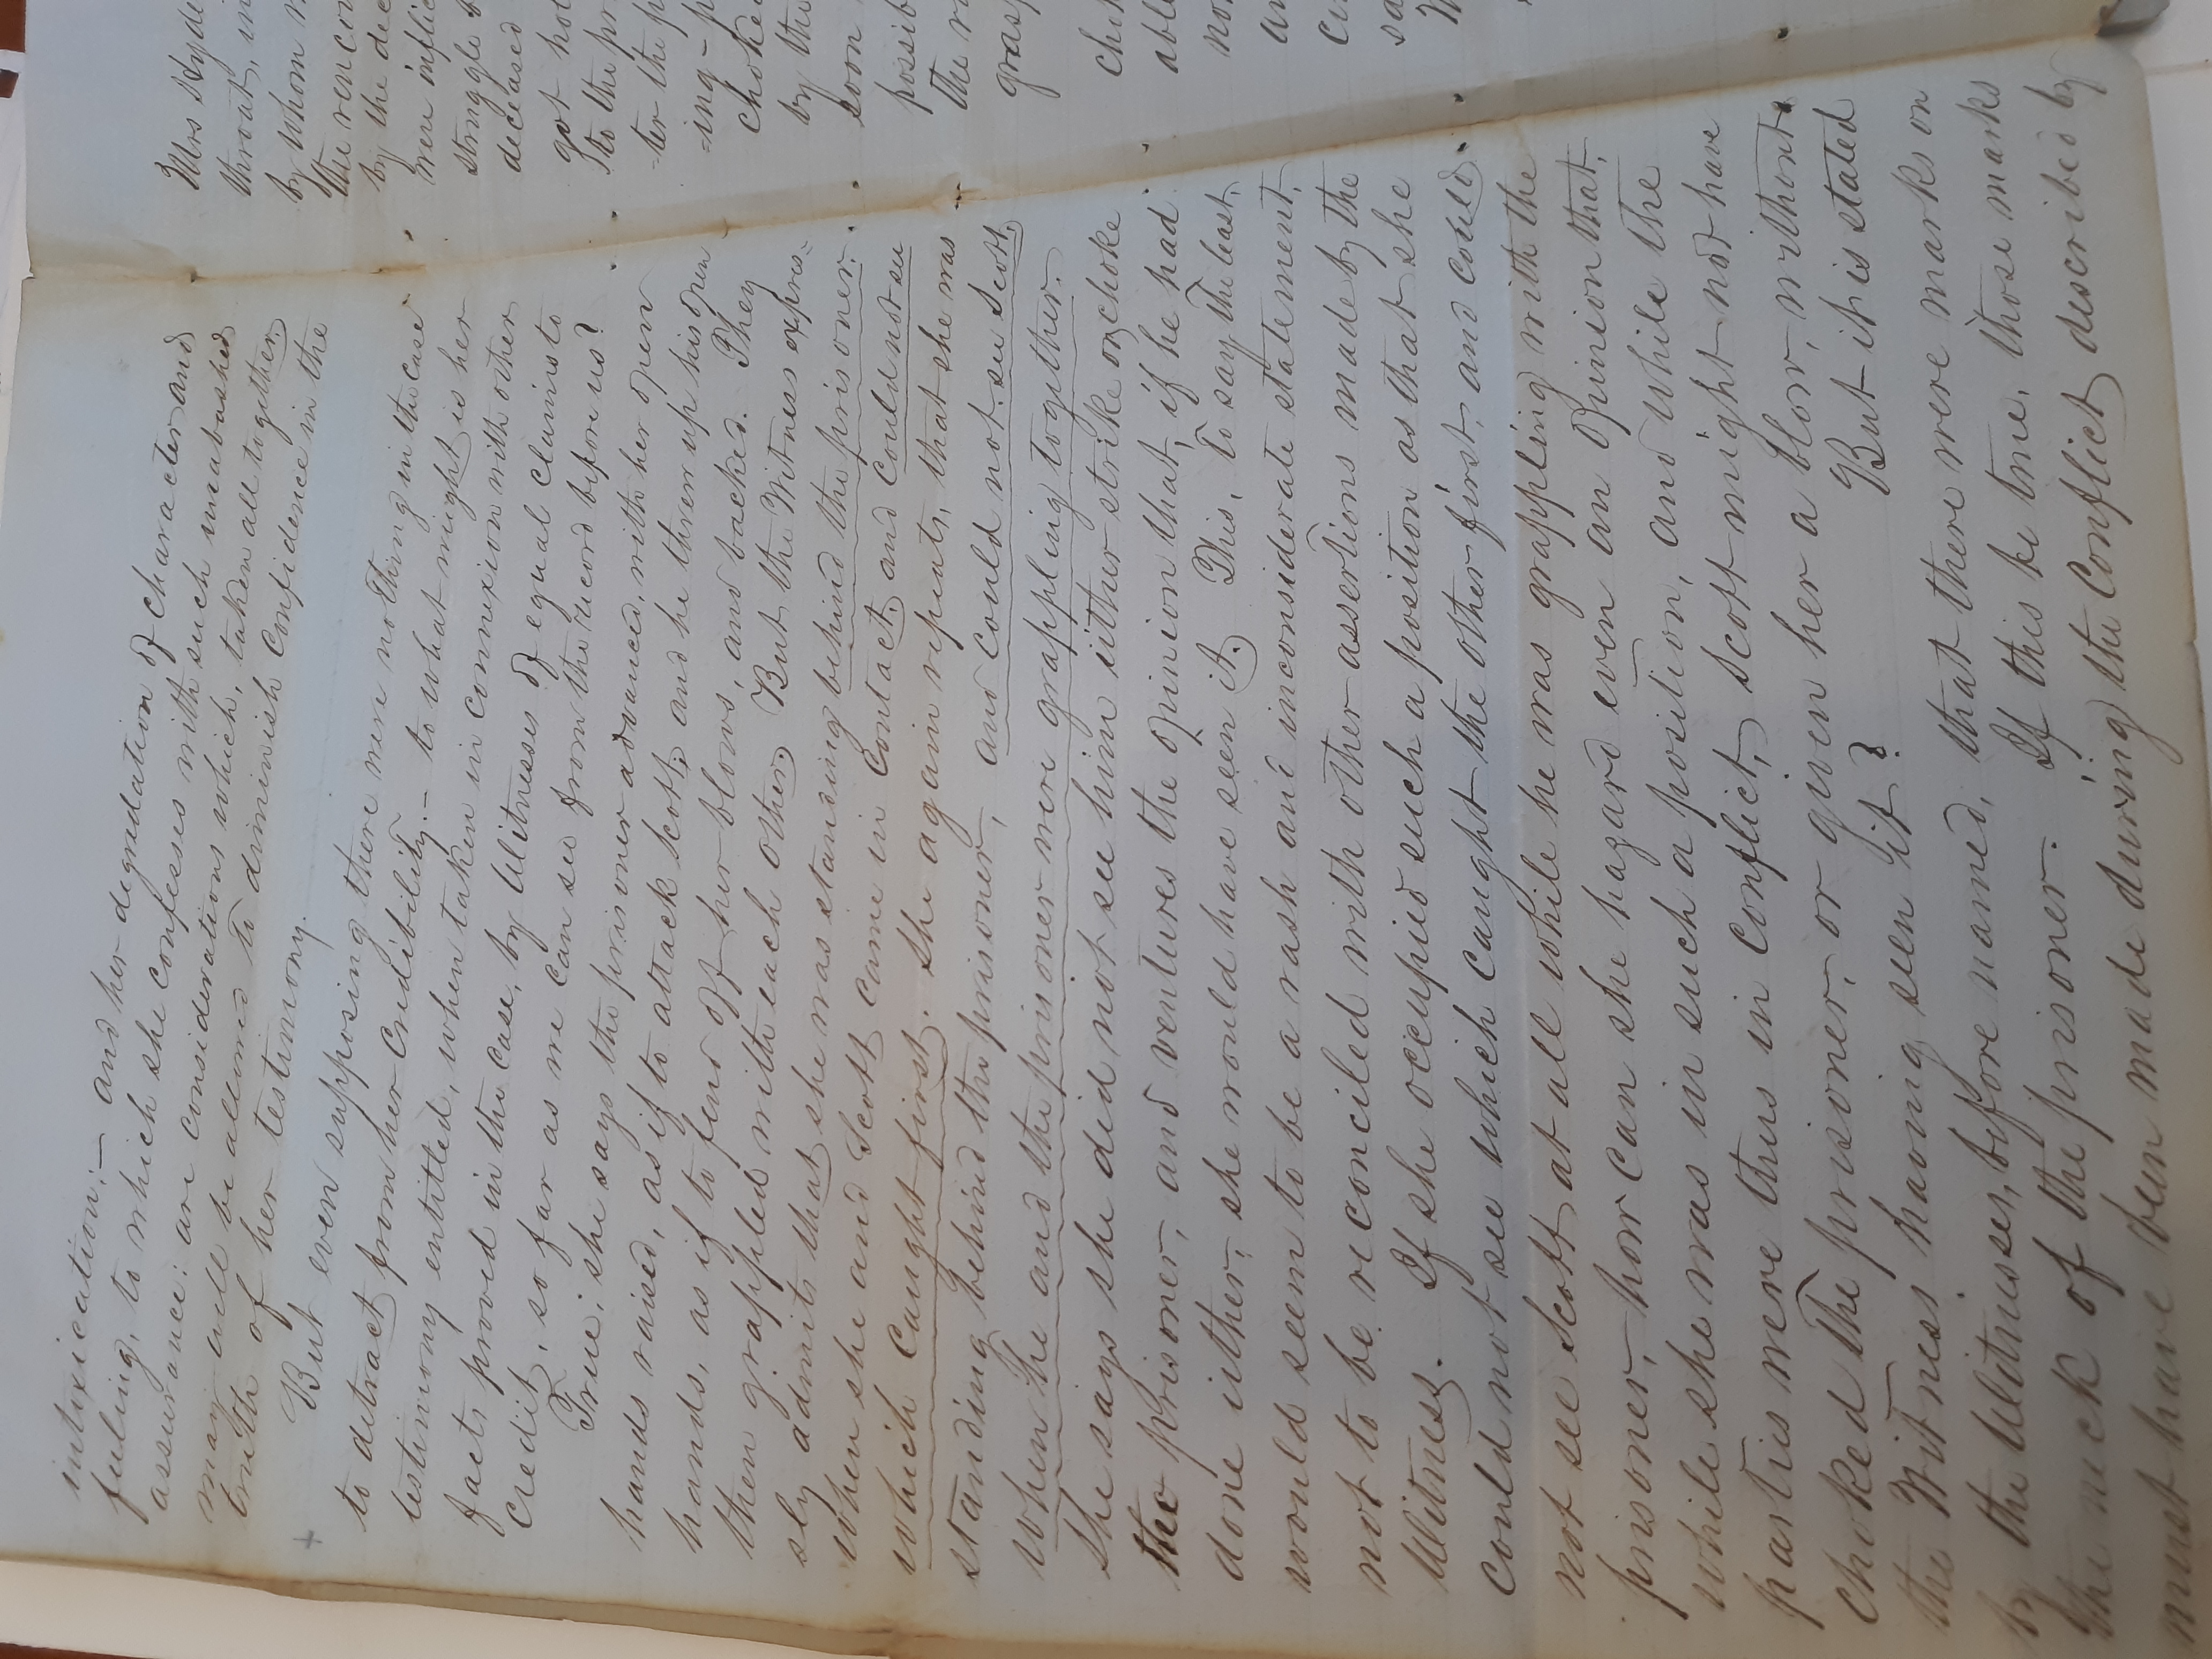 intoxication;— and her degredation of character and
feeling, to which she confesses with such unabashed
assurance: are considerations which, taken all together,
may well be allowed to diminish confidence in the
truth of her testimony.
But even supposing there were nothing in the case
to detract from her credibility.— to what weight is her
testimony entitled, when taken in connexion with other
facts proved in the case, by Witnesses of equal claims to
credit, so far as we can see from the record before us?
True; she says the prisoner advanced, with her open
hands raised, as if to attack Scott; and he threw up his open
hands, as if to fend off her blows, and backed. They
then grappled with each other. But the Witness expres=
sly admits that she was standing behind the prisoner.
when she and Scott came in contact, and could not see
which caught first. She again repeats, that she was
standing behind the prisoner, and could not see Scott,
when he and the prisoner were grappling together.
She says she did not see him either strike or choke
the prisoner, and ventures the opinion that, if he had
done either, she would have seen it. This, to say the least,
would seem to be a rash and inconsiderate statement,
not to be reconciled with other assertions made by the
Witness. If she occupied such a position as that she
could not see which caught the other first, and could
not see Scott at all while he was grappling with the
prisoner, how can she hazard even an opinion that,
while she was in such a position, and while the
parties were thus in conflict, Scott might not have
choked the prisoner, or given her a blow, without
the Witness having seen it? But it is stated
by the Witnesses, before named, that there were marks on
the neck of the prisoner. If this be true, those marks
must have been made during the conflict described by
Mrs Hyde
throat, in
by whom
the rencou
by the dec
were inflic
struggle b
deceased
got hol
to the pr
=ter the p
=ing - p
choked
by the
soon
possib
the
grasp
chok
able
no
an
sa